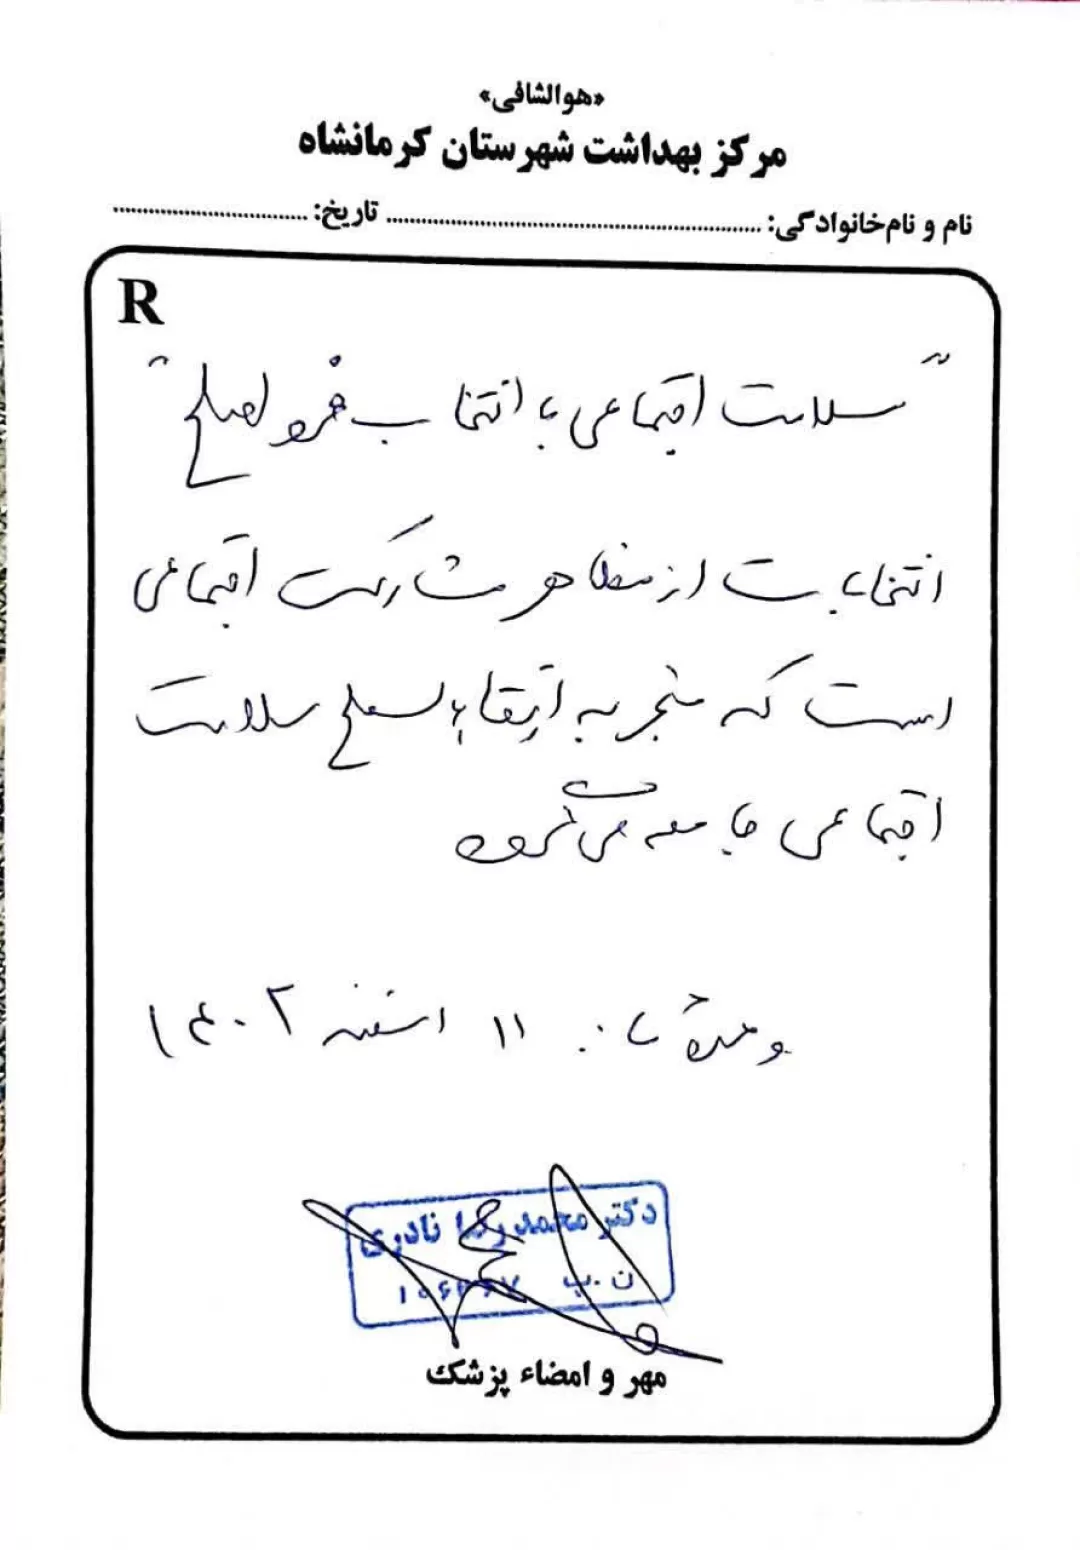 «هوالشافی»
مرکز بهداشت شهرستان کرمانشاه
نام و نام‌خانوادگی: ........................ تاریخ: ........................
R
"سلامت اجتماعی با انتخاب فرد اصلح"
انتخابات از مظاهر مشارکت اجتماعی
است که منجر به ارتقاء سطح سلامت
اجتماعی جامعه می‌گردد
وعده ما: ۱۱ اسفند ۱۴۰۲
دکتر محمدرضا نادری
ن.پ
مهر و امضاء پزشک